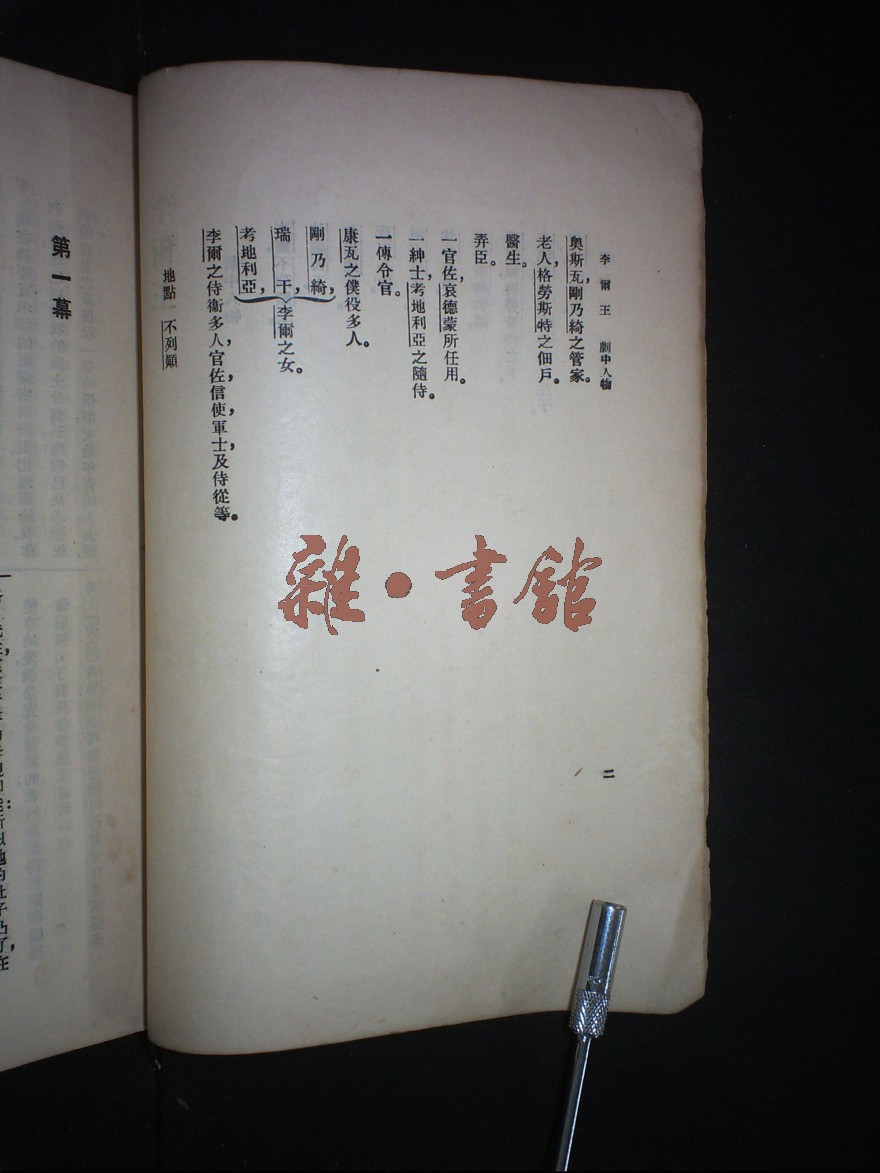 李爾王 劇中人物
奧斯瓦，剛乃綺之管家。
老人，格勞斯特之佃戶。
醫生。
弄臣。
一官佐，哀德蒙所任用。
一紳士，考地利亞之隨侍。
一傳令官。
康瓦之僕役多人。
剛乃綺，
瑞干，
考地利亞，
李爾之女。
李爾之侍衞多人，官佐，信使，軍士，及侍從等。
地點——不列顛
二
第一幕
雜·書館